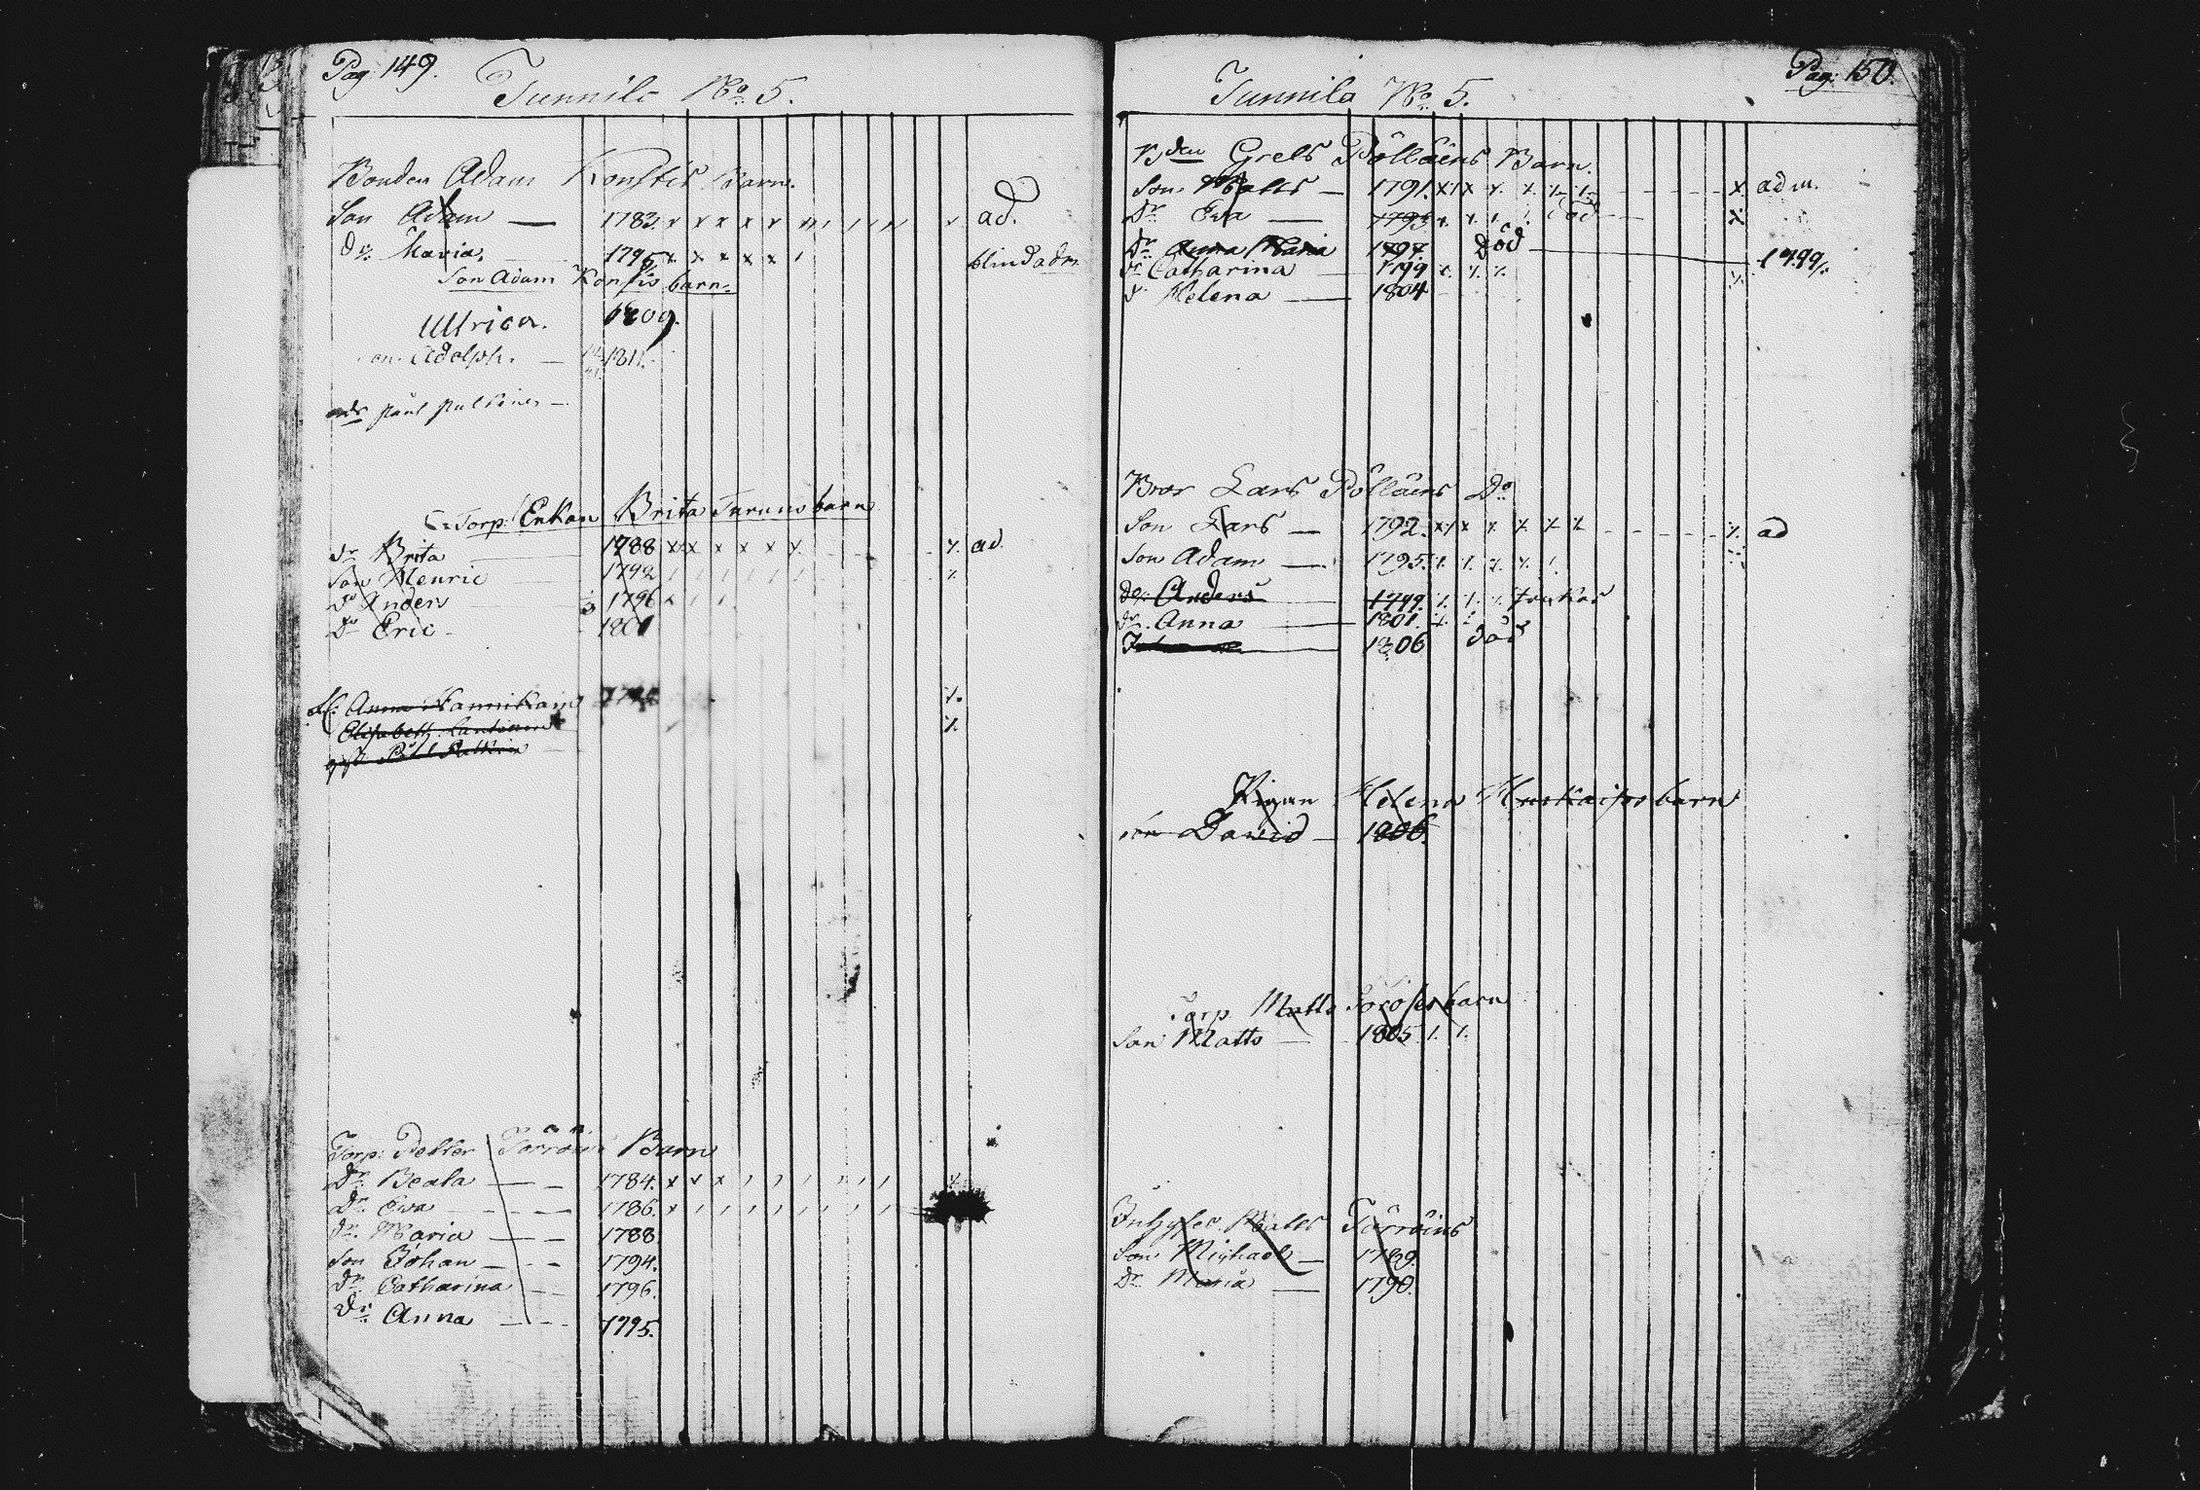 Pag: 149.
Tunnila No 5.
Bonden Adam Konstis Barn.
Son Adam — 1783. x x x x x ad.
Dr. Maria. 1795 x x x x x blind adm
Son Adam Konstis barn:
Ulrica. 1809.
son Adolph. — 1811.
Paul Pulkinen —
Torp: Enkan Brita Turuns barn
dr Brita 1788 x x x x x x ad.
Son Henric 1792
do Anders 1796
Do Eric 1801
Anna Hannikain
Elisabeth
Torp: Petter Törröins Barn
Dr. Beata — — 1784. x x x
Dr. Ewa — — 1786. x
Dr. Maria — — 1788
Son Johan — — 1794.
Dr. Catharina — 1796.
Dr. Anna — — 1795.
Pag: 150.
Tunnila No 5.
Bden Grels Pölläins Barn.
Son Matts — 1791. x x x x x adm.
Dr. Ewa — 1793 död
Dr. Anna Maria 1797. död 1799.
Dr Catharina 1799
dr Helena — 1804
Bror Lars Pölläins Do
Son Lars — 1792. x x x x x x ad
Son Adam — 1795.
do: Anders 1799.
dr. Anna 1801.
1806 död
Pigan Helena barn
son David — 1806.
Torp Matts barn
Son Matts — 1805
Inhyses Matts Törröins
Son Michael — 1789.
Dr. Maria — 1790.